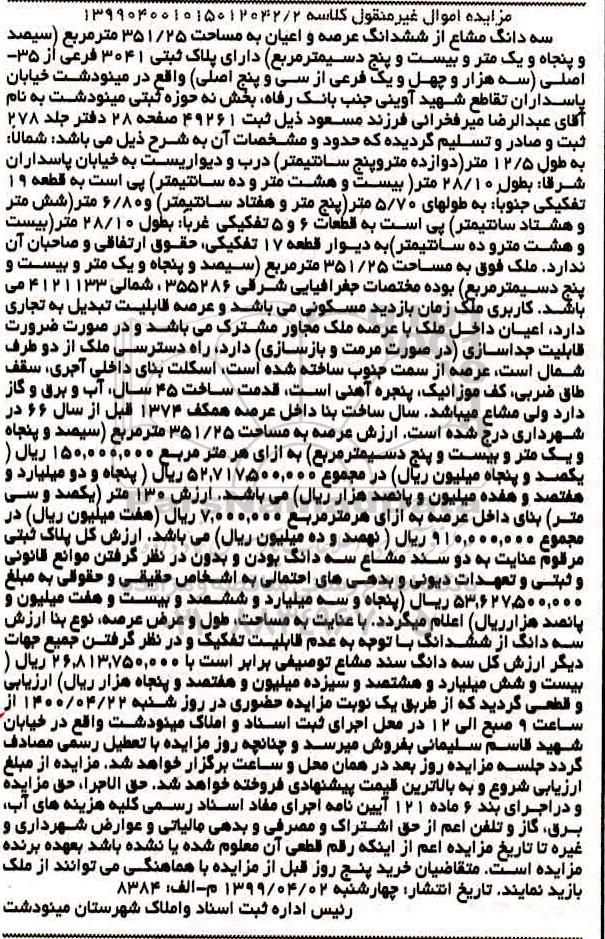 مزایده اموال غیرمنقول کلاسه ۱۳۹۹۰۴۰۰۱۰۱۵۰۱۲۰۴۲/۲
سه دانگ مشاع از ششدانگ عرصه و اعیان به مساحت ۳۵۱/۲۵ مترمربع (سیصد
و پنجاه و یک متر و بیست و پنج دسیمترمربع) دارای پلاک ثبتی ۳۰۴۱ فرعی از ۳۵-
اصلی (سه هزار و چهل و یک فرعی از سی و پنج اصلی) واقع در مینودشت خیابان
پاسداران تقاطع شهید آوینی جنب بانک رفاه، بخش نه حوزه ثبتی مینودشت به نام
آقای عبدالرضا میرفخرائی فرزند مسعود ذیل ثبت ۴۹۲۶۱ صفحه ۲۸ دفتر جلد ۲۷۸
ثبت و صادر و تسلیم گردیده که حدود و مشخصات آن به شرح ذیل می باشد: شمالا:
به طول ۱۲/۵ متر(دوازده متروپنج سانتیمتر) درب و دیواریست به خیابان پاسداران
شرقا: بطول ۲۸/۱۰ متر( بیست و هشت متر و ده سانتیمتر) پی است به قطعه ۱۹
تفکیکی جنوبا: به طولهای ۵/۷۰ متر(پنج متر و هفتاد سانتیمتر) و۶/۸۰ متر(شش متر
و هشتاد سانتیمتر) پی است به قطعات ۶ و ۵ تفکیکی غربا: بطول ۲۸/۱۰ متر(بیست
و هشت مترو ده سانتیمتر)به دیوار قطعه ۱۷ تفکیکی، حقوق ارتفاقی و صاحبان آن
ندارد. ملک فوق به مساحت ۳۵۱/۲۵ مترمربع (سیصد و پنجاه و یک متر و بیست و
پنج دسیمترمربع) بوده مختصات جغرافیایی شرقی ۳۵۵۲۸۶، شمالی ۴۱۲۱۱۳۳ می
باشد. کاربری ملک زمان بازدید مسکونی می باشد و عرصه قابلیت تبدیل به تجاری
دارد، اعیان داخل ملک با عرصه ملک مجاور مشترک می باشد و در صورت ضرورت
قابلیت جداسازی (در صورت مرمت و بازسازی) دارد، راه دسترسی ملک از دو طرف
شمال است، عرصه از سمت جنوب ساخته شده است، اسکلت بنای داخلی آجری، سقف
طاق ضربی، کف موزائیک، پنجره آهنی است، قدمت ساخت ۴۵ سال، آب و برق و گاز
دارد ولی مشاع میباشد. سال ساخت بنا داخل عرصه همکف ۱۳۷۴ قبل از سال ۶۶ در
شهرداری درج شده است. ارزش عرصه به مساحت ۳۵۱/۲۵ مترمربع (سیصد و پنجاه
و یک متر و بیست و پنج دسیمترمربع) به ازای هر متر مربع ۱۵۰,۰۰۰,۰۰۰ ریال (
یکصد و پنجاه میلیون ریال) در مجموع ۵۲,۷۱۷,۵۰۰,۰۰۰ ریال ( پنجاه و دو میلیارد و
هفتصد و هفده میلیون و پانصد هزار ریال) می باشد. ارزش ۱۳۰ متر (یکصد و سی
متر) بنای داخل عرصه به ازای هرمترمربع ۷,۰۰۰,۰۰۰ ریال (هفت میلیون ریال) در
مجموع ۹۱۰,۰۰۰,۰۰۰ ریال ( نهصد و ده میلیون ریال) می باشد. ارزش کل پلاک ثبتی
مرقوم عنایت به دو سند مشاع سه دانگ بودن و بدون در نظر گرفتن موانع قانونی
و ثبتی و تعهدات دیونی و بدهی های احتمالی به اشخاص حقیقی و حقوقی به مبلغ
۵۳,۶۲۷,۵۰۰,۰۰۰ ریال (پنجاه و سه میلیارد و ششصد و بیست و هفت میلیون و
پانصد هزارریال) اعلام میگردد. با عنایت به مساحت، طول و عرض عرصه، نوع بنا ارزش
سه دانگ از ششدانگ با توجه به عدم قابلیت تفکیک و در نظر گرفتن جمیع جهات
دیگر ارزش کل سه دانگ سند مشاع توصیفی برابر است با ۲۶,۸۱۳,۷۵۰,۰۰۰ ریال (
بیست و شش میلیارد و هشتصد و سیزده میلیون و هفتصد و پنجاه هزار ریال) ارزیابی
و قطعی گردید که از طریق یک نوبت مزایده حضوری در روز شنبه ۱۴۰۰/۰۴/۲۲ از
ساعت ۹ صبح الی ۱۲ در محل اجرای ثبت اسناد و املاک مینودشت واقع در خیابان
شهید قاسم سلیمانی بفروش میرسد و چنانچه روز مزایده با تعطیل رسمی مصادف
گردد جلسه مزایده روز بعد در همان محل و ساعت برگزار خواهد شد. مزایده از مبلغ
ارزیابی شروع و به بالاترین قیمت پیشنهادی فروخته خواهد شد. حق الاجرا، حق مزایده
و دراجرای بند ۶ ماده ۱۲۱ آیین نامه اجرای مفاد اسناد رسمی کلیه هزینه های آب،
برق، گاز و تلفن اعم از حق اشتراک و مصرفی و بدهی مالیاتی و عوارض شهرداری و
غیره تا تاریخ مزایده اعم از اینکه رقم قطعی آن معلوم شده یا نشده باشد بعهده برنده
مزایده است. متقاضیان خرید پنج روز قبل از مزایده با هماهنگی می توانند از ملک
بازید نمایند. تاریخ انتشار: چهارشنبه ۱۳۹۹/۰۴/۰۲ م-الف: ۸۳۸۴
رئیس اداره ثبت اسناد واملاک شهرستان مینودشت